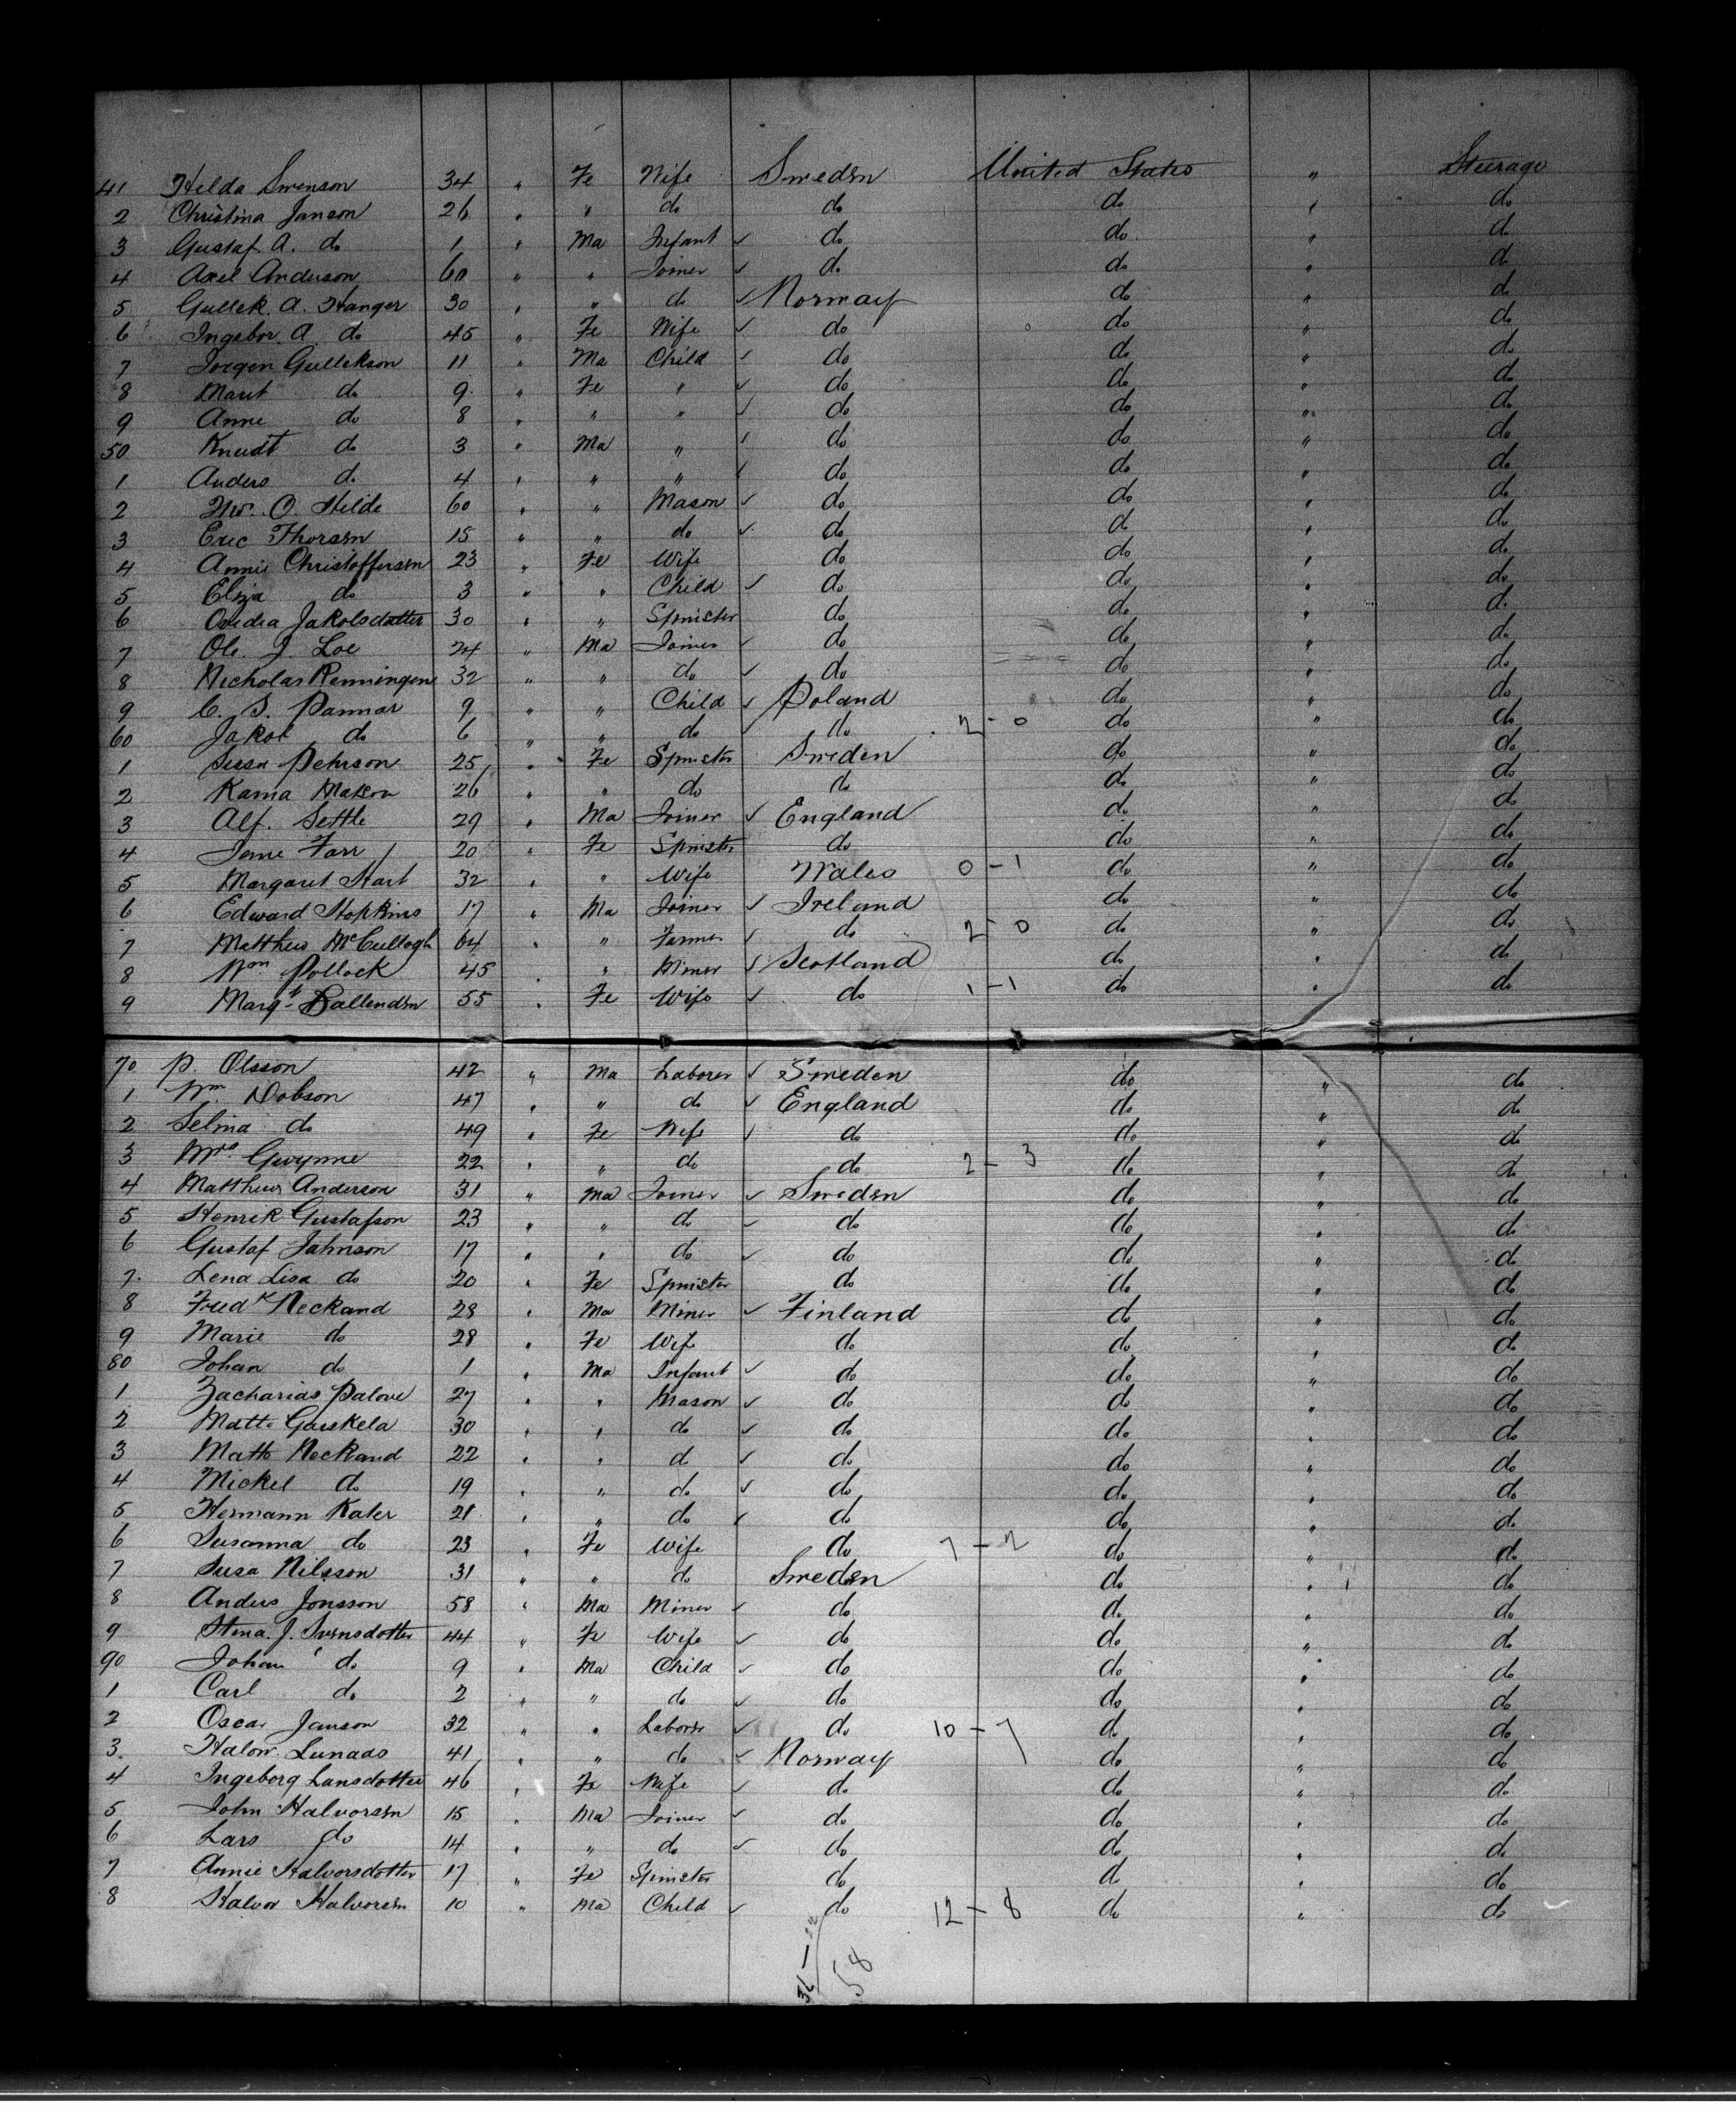 41 Hilda Swenson 34 " Fe Wife Sweden United States " Steerage
2 Christina Janson 26 " " do do do " do
3 Gustaf A. do 1 " Ma Infant ✓ do do " do
4 Axel Anderson 60 " " Joiner ✓ do do " do
5 Gullek A. Hanger 30 " " do ✓ Norway do " do
6 Ingebor A. do 45 " Fe Wife ✓ do do " do
7 Jorgen Gullekson 11 " Ma Child ✓ do do " do
8 Marit do 9 " Fe " ✓ do do " do
9 Anne do 8 " " " ✓ do do " do
50 Knudt do 3 " Ma " ✓ do do " do
1 Anders do 4 " " " ✓ do do " do
2 O. Hilde 60 " " Mason ✓ do do " do
3 Eric Thorsen 15 " " do ✓ do do " do
4 Annie Christoffersen 23 " Fe Wife do do " do
5 Eliza do 3 " " Child ✓ do do " do
6 Jakobsdatter 30 " " Spinster do do " do
7 Ole J. Loe 24 " Ma Joiner ✓ do do " do
8 Nicholas Renningen 32 " " do ✓ do do " do
9 C. S. Pannar 9 " " Child ✓ Poland do " do
60 Jakob do 6 " " do ✓ do 2-0 do " do
1 Sissa Pehrson 25 " Fe Spinster Sweden do " do
2 Karna Matson 26 " " do do do " do
3 Alf. Settle 29 " Ma Joiner ✓ England do " do
4 Jane Farr 20 " Fe Spinster do do " do
5 Margaret Hart 32 " " Wife Wales 0-1 do " do
6 Edward Hopkins 17 " Ma Joiner ✓ Ireland do " do
7 Matthew McCullogh 64 " " Farmer ✓ do 2-0 do " do
8 Wm Pollock 45 " " Miner ✓ Scotland do " do
9 Margt Ballenden 55 " Fe Wife ✓ do 1-1 do " do
70 P. Olsson 42 " Ma Laborer ✓ Sweden do " do
1 Wm Dobson 47 " " do ✓ England do " do
2 Selina do 49 " Fe Wife ✓ do do " do
3 Mrs Gwynne 22 " " do do 2-3 do " do
4 Matthew Anderson 31 " Ma Joiner ✓ Sweden do " do
5 Henrik Gustafson 23 " " do ✓ do do " do
6 Gustaf Johnson 17 " " do ✓ do do " do
7 Lena Lisa do 20 " Fe Spinster do do " do
8 Fredk Neckand 28 " Ma Miner ✓ Finland do " do
9 Marie do 28 " Fe Wife do do " do
80 Johan do 1 " Ma Infant ✓ do do " do
1 Zacharias Palove 27 " " Mason ✓ do do " do
2 Matts Gaskela 30 " " do ✓ do do " do
3 Matts Neckand 22 " " do ✓ do do " do
4 Mickel do 19 " " do ✓ do do " do
5 Hermann Kater 21 " " do ✓ do do " do
6 Susanna do 23 " Fe Wife do 7-2 do " do
7 Susa Nilsson 31 " " do Sweden do " do
8 Anders Jonsson 58 " Ma Miner ✓ do do " do
9 Stina J. Svensdotter 44 " Fe Wife ✓ do do " do
90 Johan do 9 " Ma Child ✓ do do " do
1 Carl do 2 " " do ✓ do do " do
2 Oscar Janson 32 " " Laborer ✓ do 10-7 do " do
3 Halow. Lunaas 41 " " do ✓ Norway do " do
4 Ingeborg Larsdotter 46 " Fe Wife ✓ do do " do
5 John Halvorsen 15 " Ma Joiner ✓ do do " do
6 Lars do 14 " " do ✓ do do " do
7 Annie Halvorsdotter 17 " Fe Spinster do do " do
8 Halvor Halvorsen 10 " Ma Child ✓ do 12-8 do " do
36-22
58